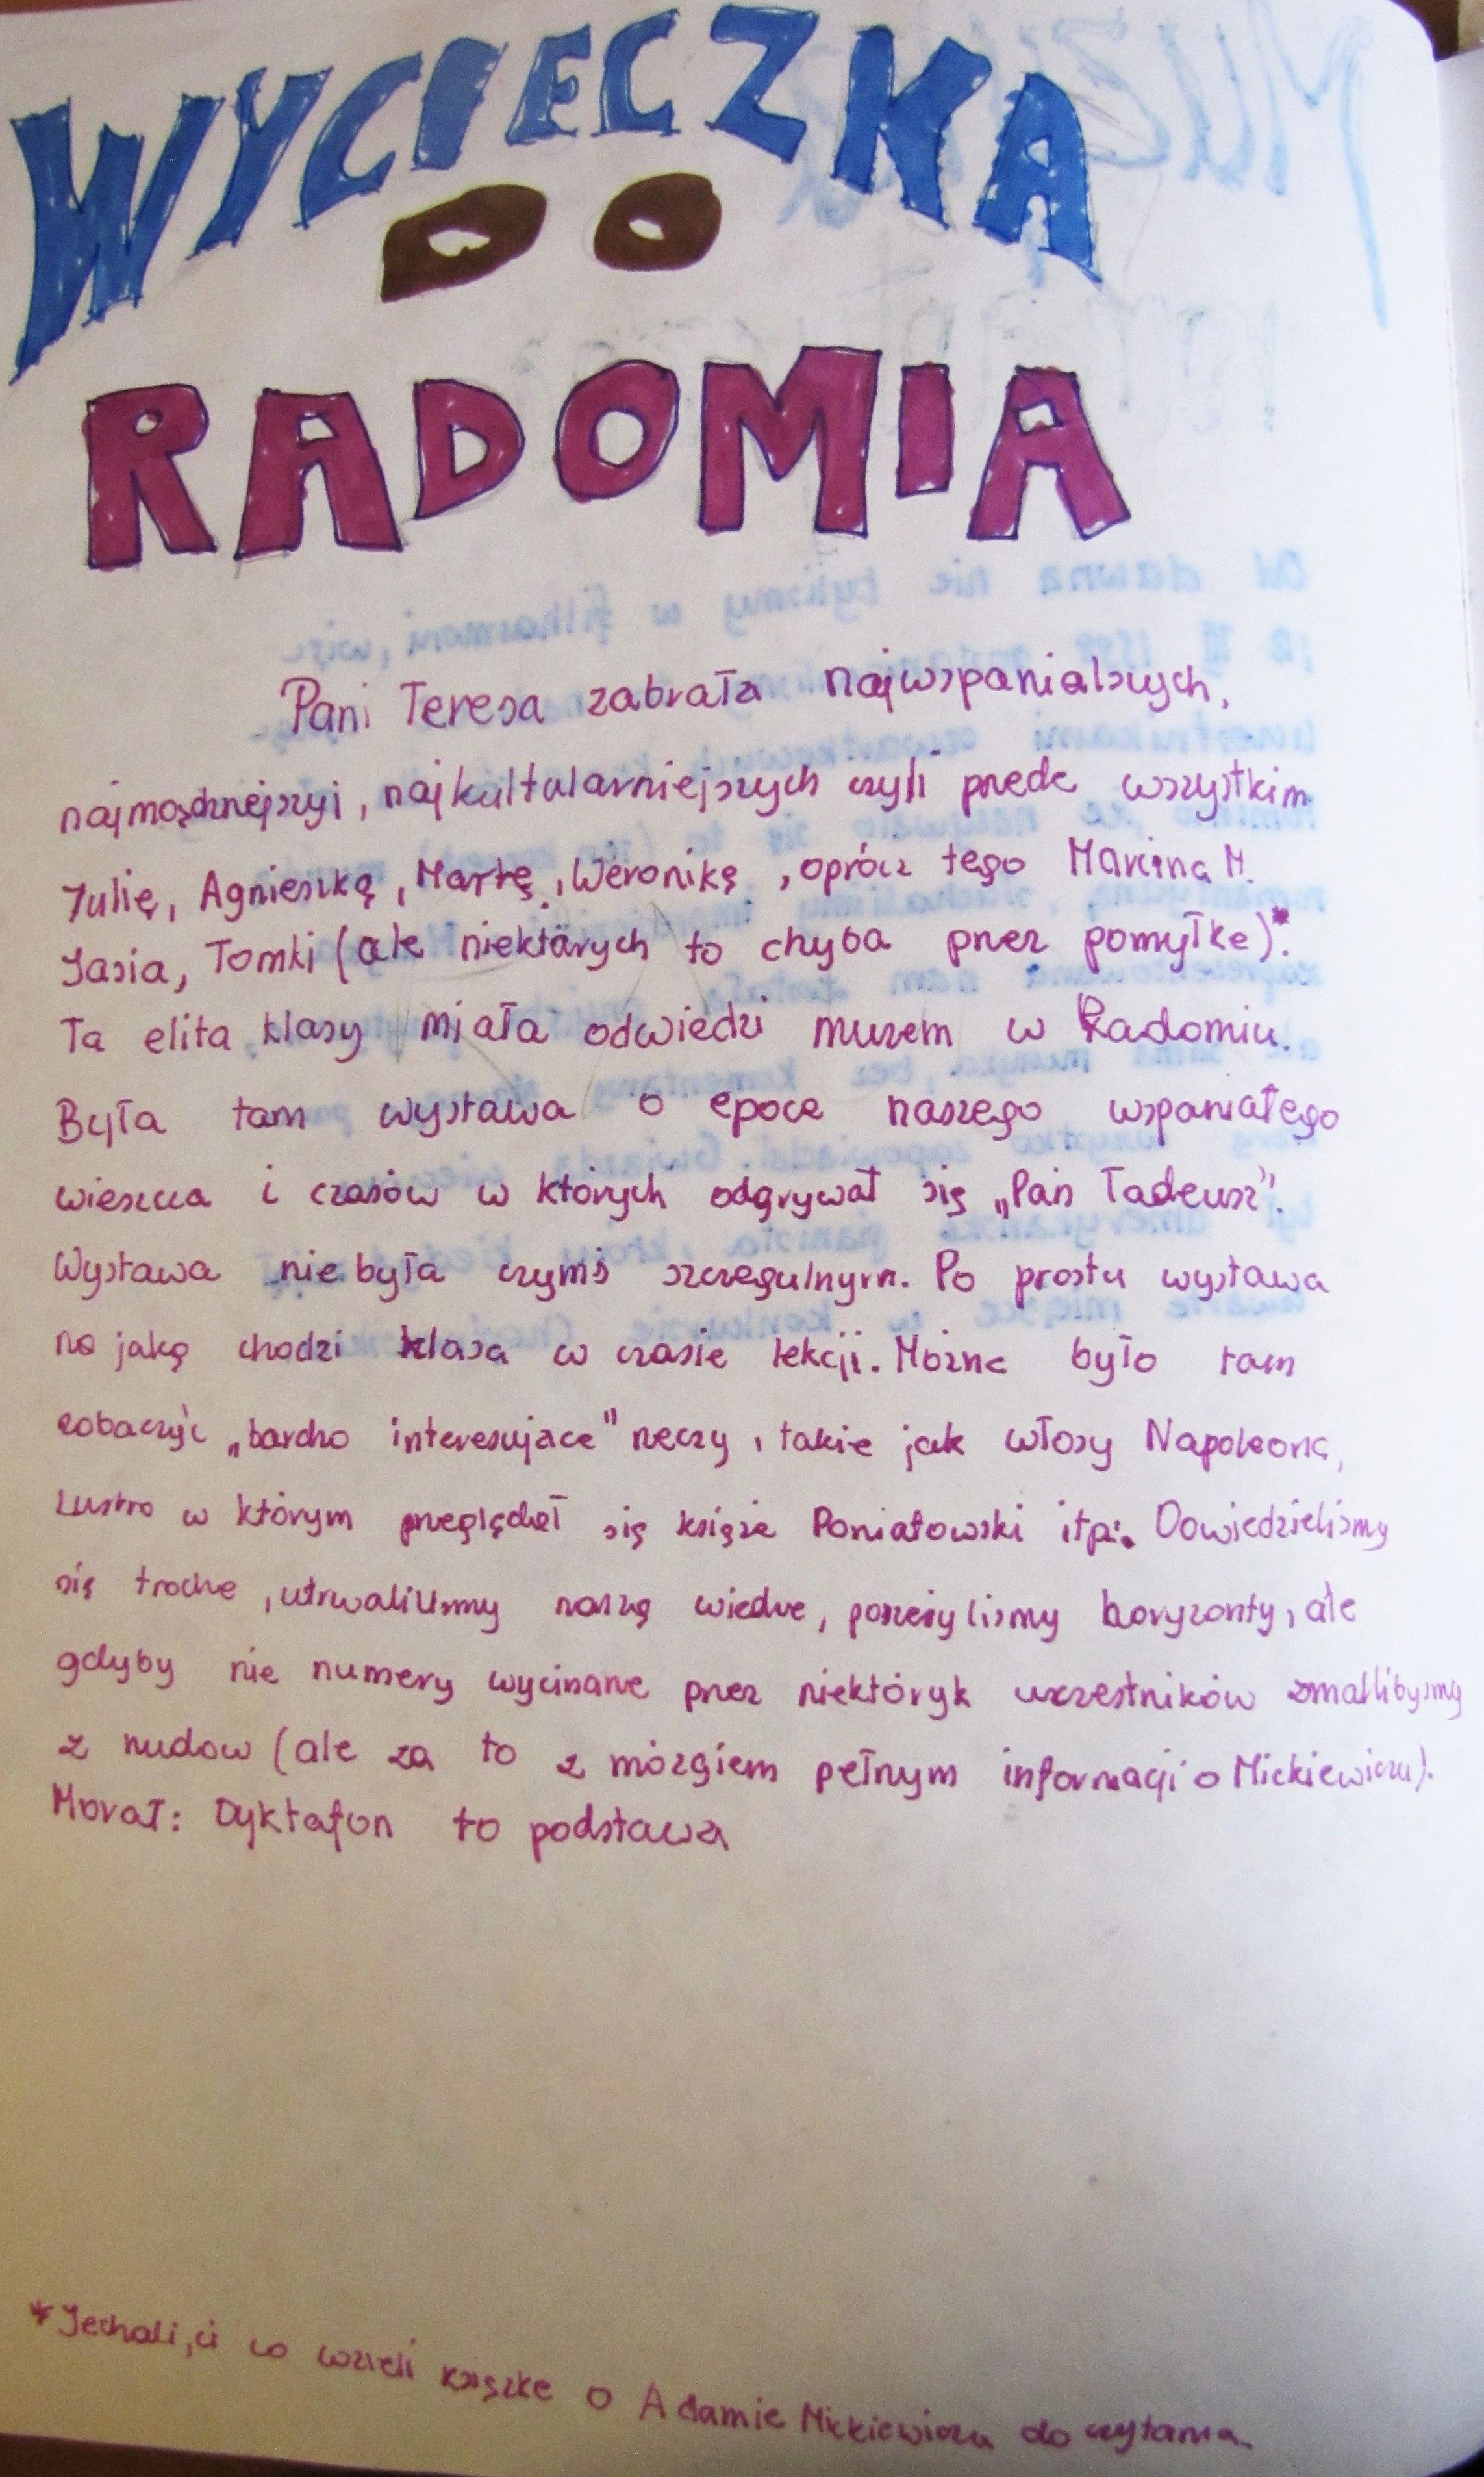 WYCIECZKA
DO
RADOMIA
Pani Teresa zabrała najwspanialszych,
najmądrzejszyj, najkulturarniejszych czyli przede wszystkim
Julię, Agnieszkę, Martę, Weronikę, oprócz tego Marcina M.
Jasia, Tomki (ale niektórych to chyba przez pomyłke)*.
Ta elita klasy miała odwiedzi muzem w Radomiu.
Była tam wystawa o epoce naszego wspaniałego
wieszcza i czasów w których odgrywał się „Pan Tadeusz".
Wystawa nie była czymś szczegulnym. Po prostu wystawa
na jaką chodzi klasa w czasie lekcji. Można było tam
zobaczyć „bardzo interesujace" rzeczy, takie jak włosy Napoleona,
Lustro w którym przeglądał się książe Poniatowski itp. Dowiedzieliśmy
się troche, utrwaliliśmy naszą wiedze, poszeżyliśmy horyzonty, ale
gdyby nie numery wycinane przez niektóryk uczestników zmarlibyśmy
z nudow (ale za to z mózgiem pełnym informacji o Mickiewiczu).
Morał: Dyktafon to podstawa
*Jechali, ci co wzieli książke o Adamie Mickiewiczu do czytania.